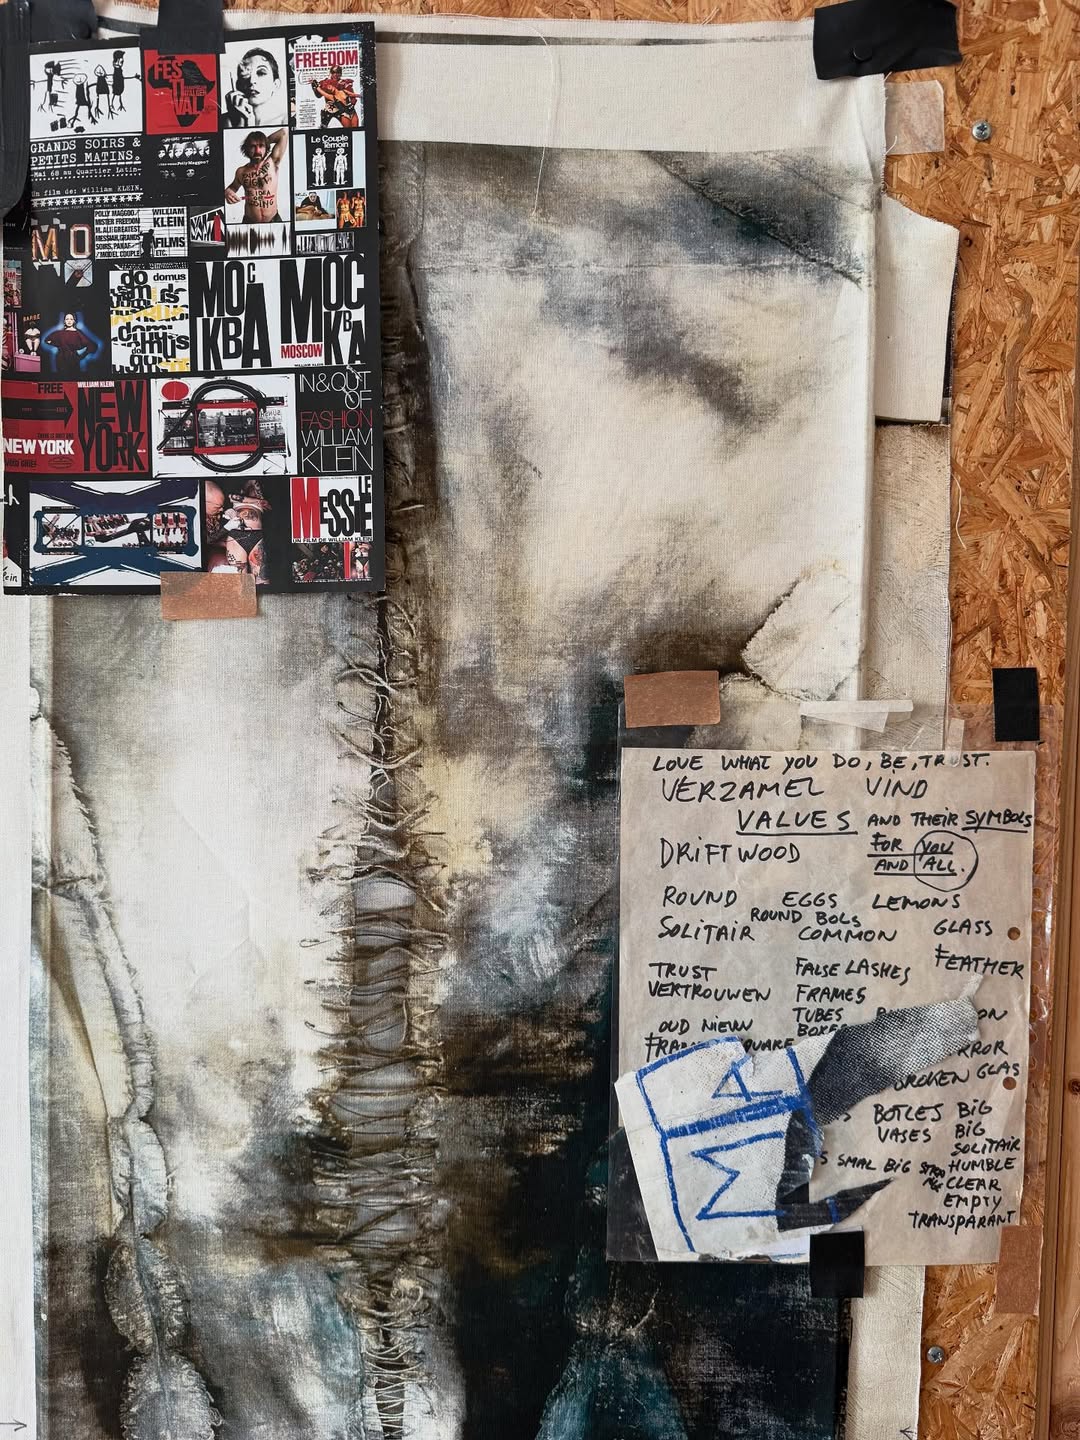 FESTIVAL
FREEDOM
GRANDS SOIRS &
PETITS MATINS.
Mai 68 au Quartier Latin
Un film de: William KLEIN.
Le Couple
Témoin
MO
POLLY MAGGOO/
MISTER FREEDOM
M. ALI GREATEST
MESSIAH, GRANDS
SOIRS, PANAF
/MODEL COUPLE
WILLIAM
KLEIN
FILMS
ETC.
domus
МОСКВА
МОСКВА
MOSCOW
FREE
WILLIAM KLEIN
NEW
YORK
NEW YORK
IN & OUT
OF
FASHION
WILLIAM
KLEIN
LE
MESSIE
UN FILM DE WILLIAM KLEIN
LOVE WHAT YOU DO, BE, TRUST.
VERZAMEL VIND
VALUES AND THEIR SYMBOLS
FOR YOU
AND ALL.
DRIFTWOOD
ROUND EGGS LEMONS
ROUND BOLS
SOLITAIR COMMON GLASS
FEATHER
TRUST FALSE LASHES
VERTROUWEN FRAMES
TUBES
OUD NIEUW BOXES
BROKEN GLAS
BOTLES BIG
VASES BIG
SOLITAIR
SMAL BIG HUMBLE
CLEAR
EMPTY
TRANSPARANT